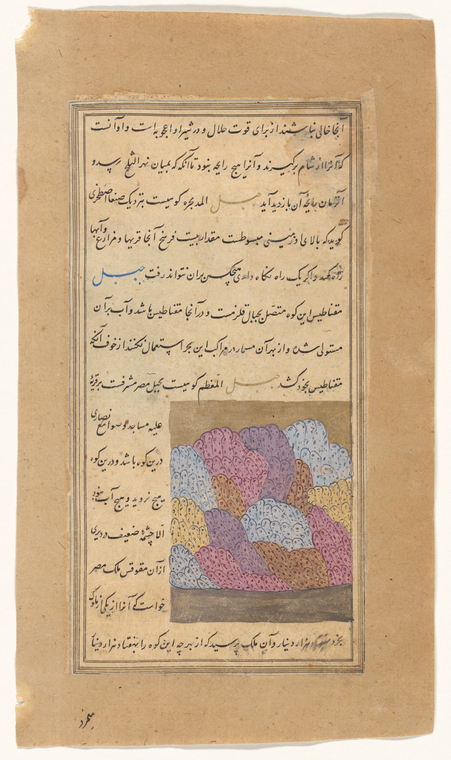 آنجا خالی نباشند از برای قوت حلال و در شیر او اعجوبه است و او آنست
که آنرا از شام برگیرند و آنرا هیچ رایحه نبود تا آنکه که بمیان نهر الثلج رسید و
آنزمان رایحه آن بازدید آید جبل المدبحره کوهیست بنزدیک صنعا اصطخری
گوید که بالای او زمینی مبسوطست مقدار بیست فرسخ آنجا قریها و مزارع و آبها
و اگر یک راه نگاه داری هیچکس بران نتواند رفت جبل
مقناطیس این کوه متصل بجبال قلزمست و در آنجا مقناطیس باشد و آب بر آن
مستولی شده و از بهر آن مسمار در مراکب این بحر استعمال نکنند از خوف آنکه
مقناطیس بخود کشد جبل المعظم کوهیست بجبل مصر مشرفست بر قرافه
علیه مساجد و صوامع نصاری
درین کوه باشد و درین کوه
هیچ نروید و هیچ آب نبود
الا چشمه ضعیف در دیری
از آن مقوقس ملک مصر
خواست که آنرا از یکی از ملوک
بخرد هزار دینار و آن ملک پرسید که از بهر چه این کوه را بهفتاد هزار دینار